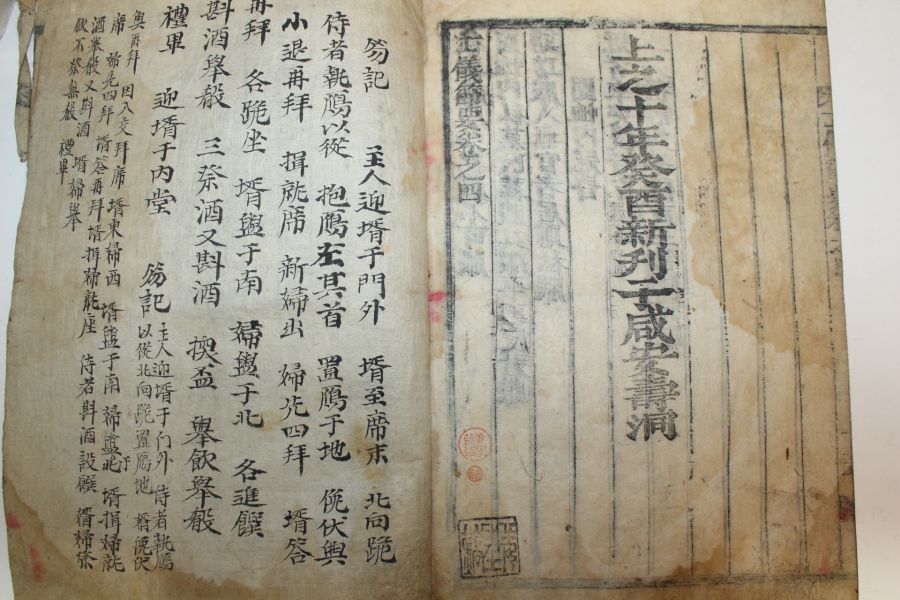 上之十年癸酉新刊于咸安壽洞
士儀節要卷之四
笏記 主人迎壻于門外 壻至席末 北向跪
侍者執鴈以從 抱鴈左其首 置鴈于地 俛伏興
小退再拜 揖就席 新婦出 婦先四拜 壻答
再拜 各跪坐 壻盥于南 婦盥于北 各進饌
斟酒舉殽 三祭酒又斟酒 換盃 舉飲舉殽
禮畢 迎壻于內堂
笏記 主人迎壻于门外 侍者執鴈
以從北向跪置鴈地 壻俛伏
興再拜 因入交拜席 壻東婦西 壻盥于南 婦盥于北 壻揖婦就
席 婦先四拜 壻答再拜 壻揖婦就座 侍者斟酒設饌 壻婦祭
酒舉殽又斟酒 壻婦舉
飲不祭無殽 禮畢